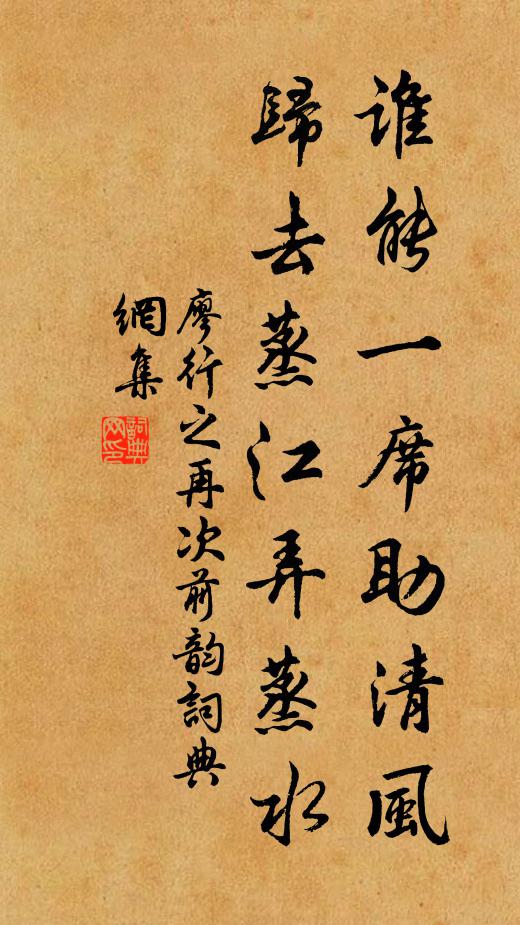 誰能一席助清風
歸去蒸江弄蒸水
廖行之再次前韵詞典
網集
詞典
网印